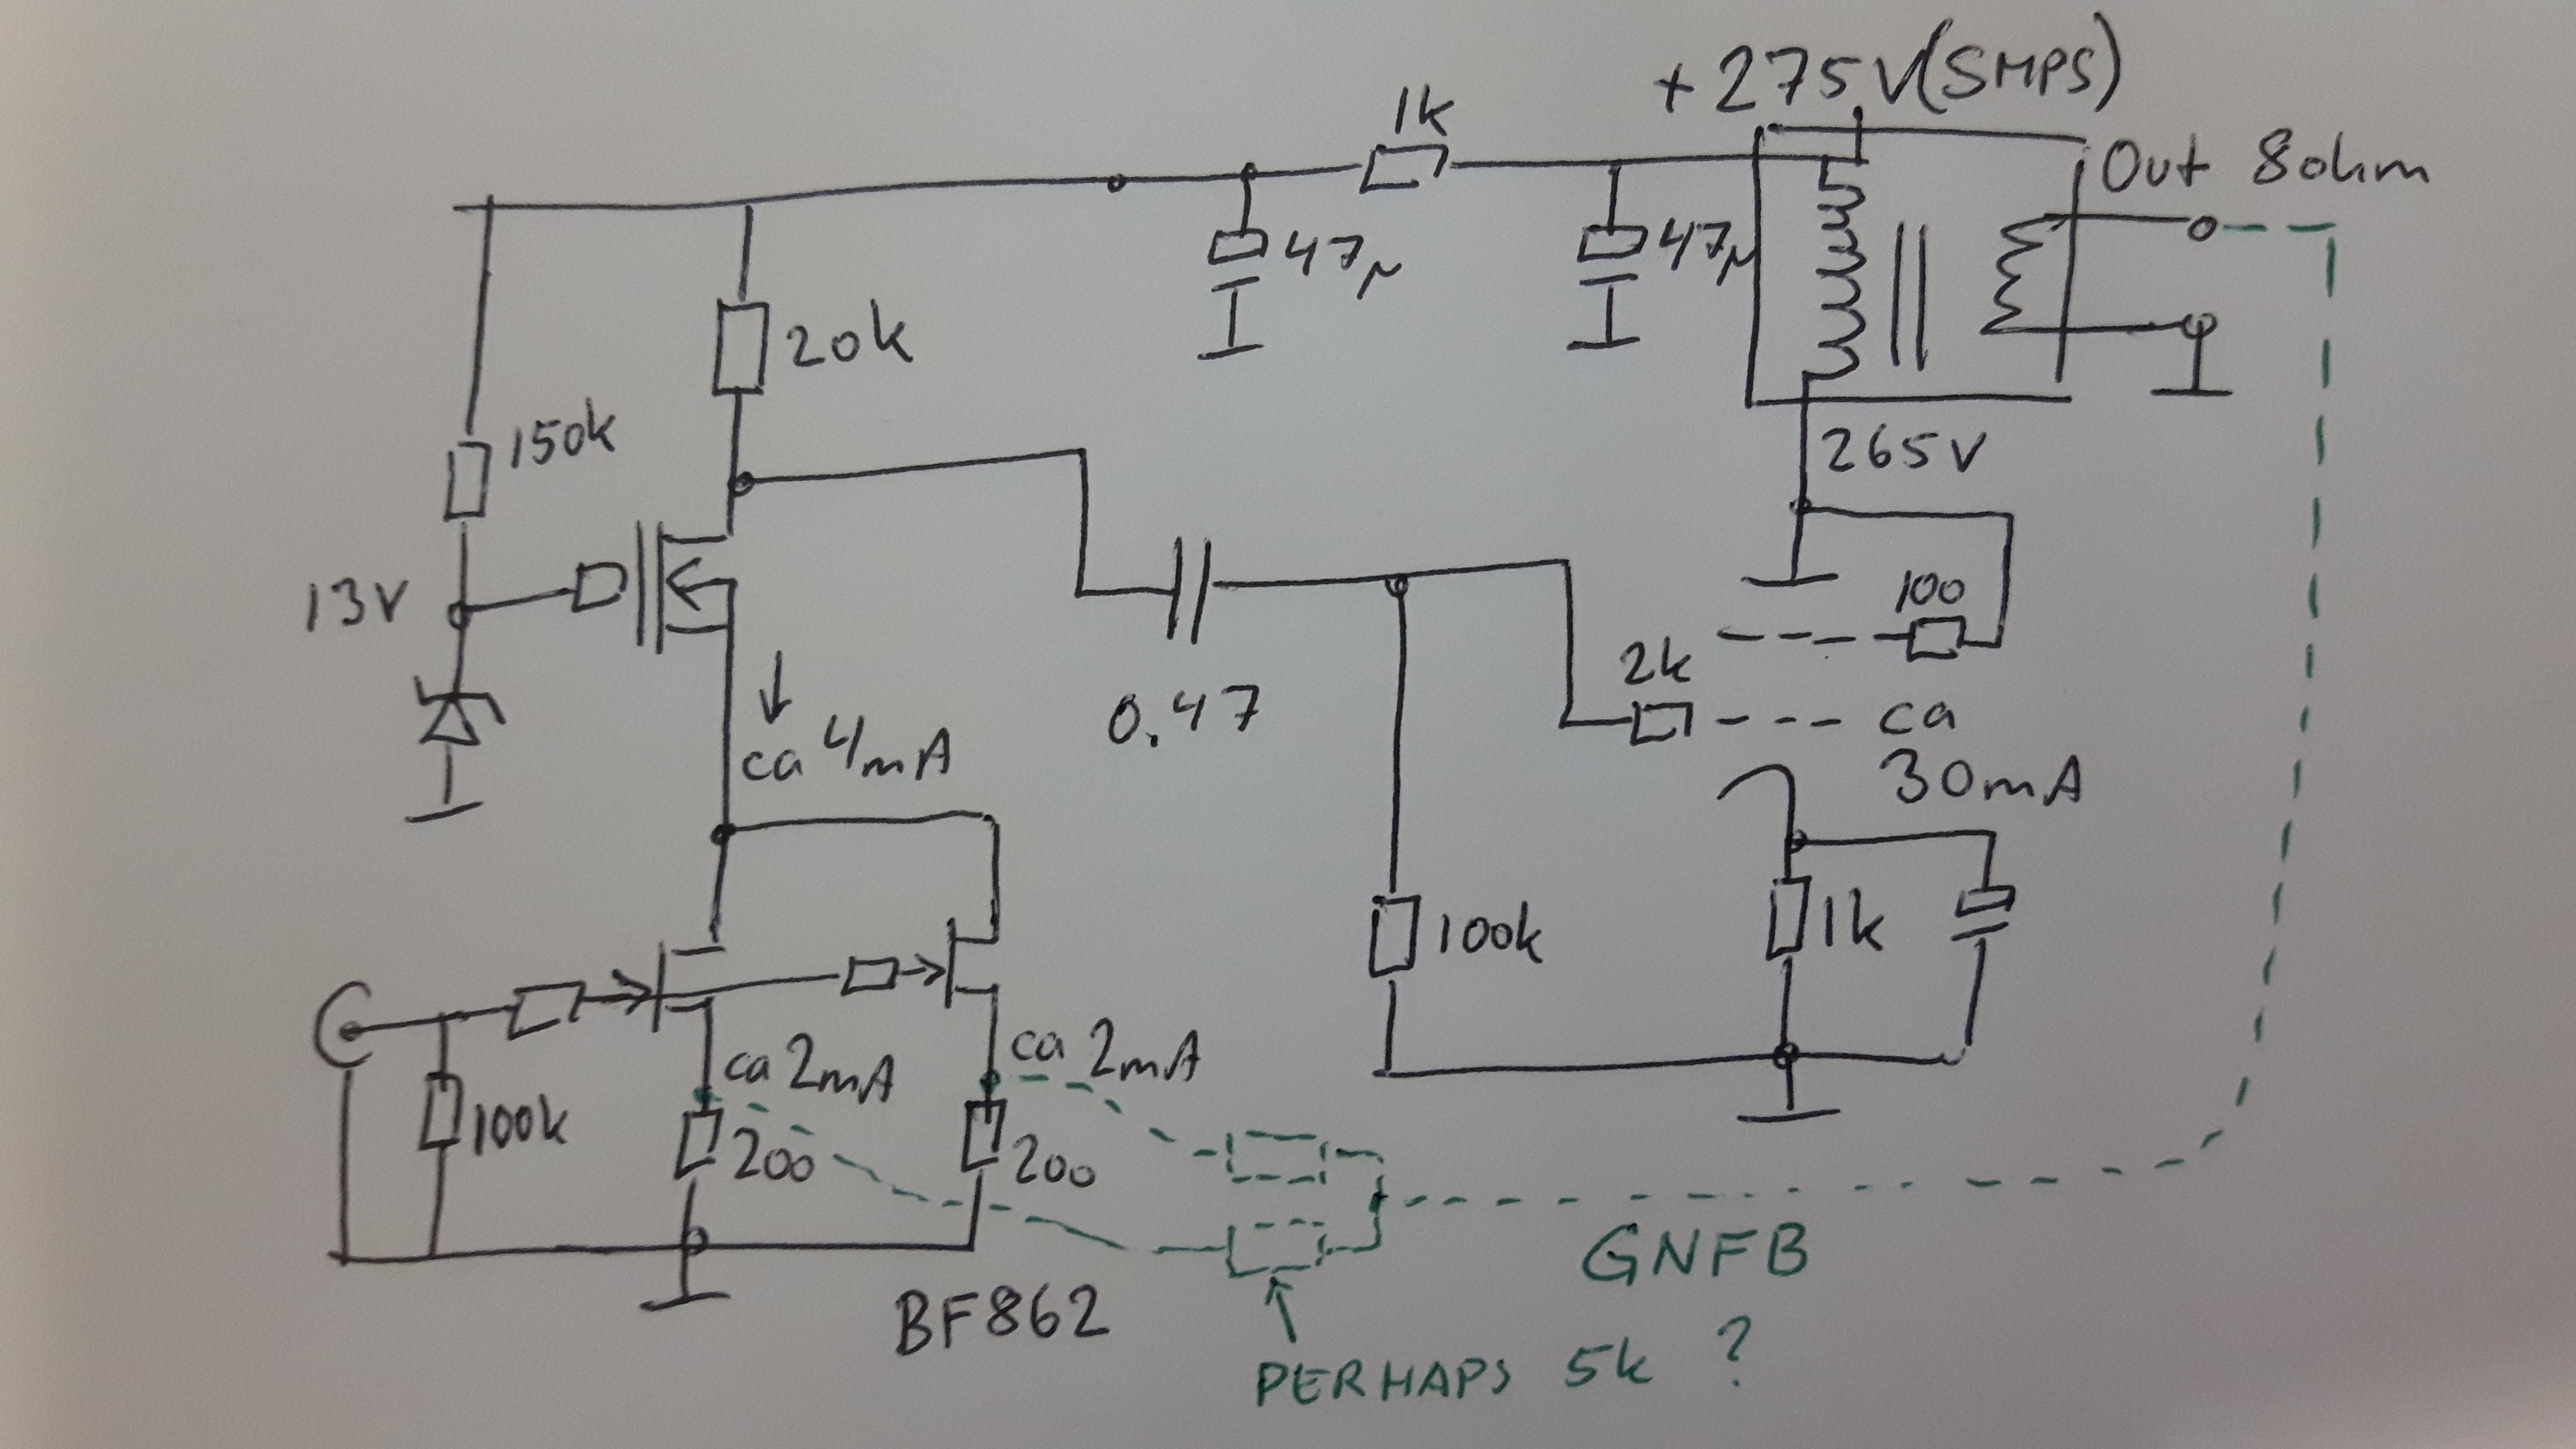 +275V(SMPS)
1k
Out 8ohm
47µ
47µ
20k
150k
265V
13V
100
2k
0.47
ca
30mA
ca 4mA
100k
1k
ca 2mA
ca 2mA
100k
200
200
GNFB
BF862
PERHAPS 5k ?